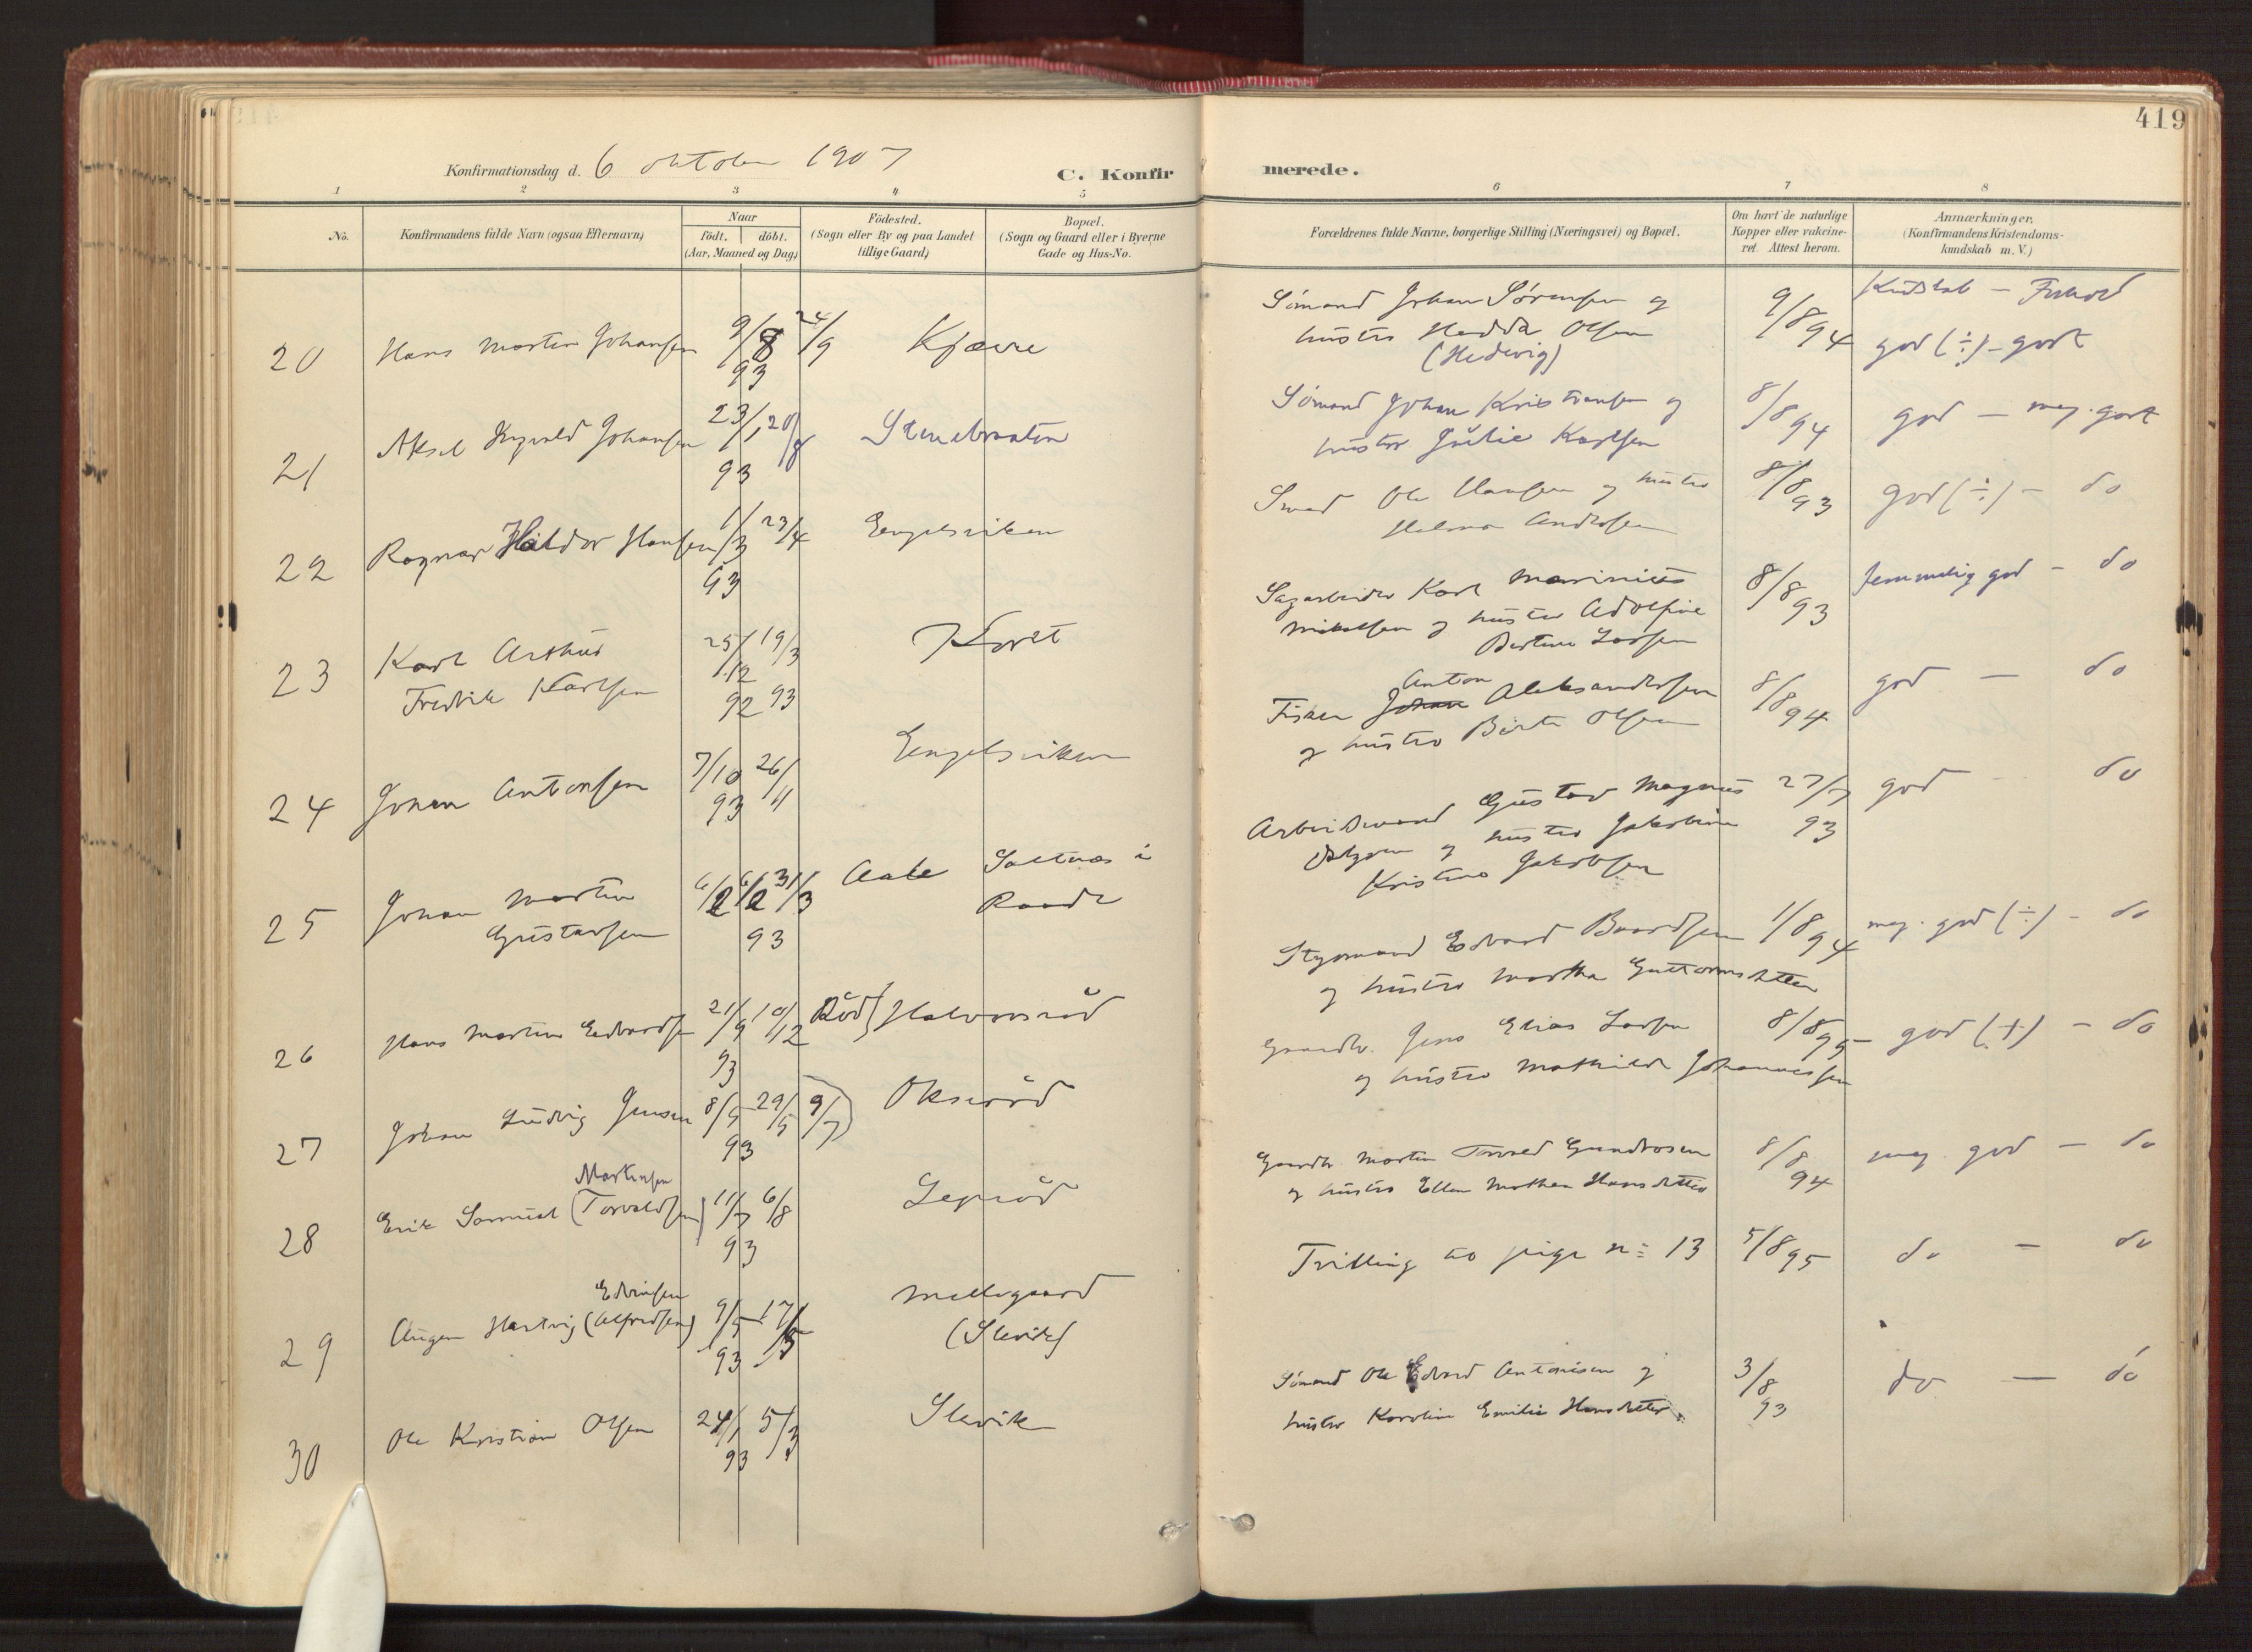 419
Konfirmationsdag d. 6 oktober 1907
C. Konfirmerede.
1 2 3 4 5 6 7 8
No.
Konfirmandens fulde Navn (ogsaa Efternavn)
Naar
födt. döbt.
(Aar, Maaned og Dag)
Födested.
(Sogn eller By og paa Landet
tillige Gaard)
Bopæl.
(Sogn og Gaard eller i Byerne
Gade og Hus-No.
Forældrenes fulde Navne, borgerlige Stilling (Næringsvei) og Bopæl.
Om havt de naturlige
Kopper eller vakcine-
ret. Attest herom.
Anmærkninger.
(Konfirmandens Kristendoms-
kundskab m. V.)
Kundskab - Forhold
20 Hans Martin Johansen 9/8 93 24/9 Kjære
Sömand Johan Sörensen og
hustru Hedda Olsen
(Hedevig)
9/8 94 god (÷) - godt
21 Aksel Johansen 23/1 93 20/8 Stenebraaten
Sömand Johan Kristiansen og
hustru Julie Karlsen
8/8 94 god - meg. godt
22 Ragnar Haldor Hansen 1/3 93 23/4 Engelsviken
Smed Ole Hansen og hustru
Helma Andersen
8/8 93 god (÷) - do
23 Karl Arthur
Fredrik Karlsen
25/12 92 19/3 93
Sagarbeider Karl Marinius
Mikelsen og hustru Adolfine
Bertine Larsen
8/8 93 temmelig god - do
24 Johan Antonsen 7/10 93 26/11 Engelsviken
Anton
Fisker Johan Aleksandersen
og hustru Berte Olsen
8/8 94 god - do
25 Johan Martin
Gustavsen
6/2 31/3 93 Aale Saltnæs i
Raade
Arbeidsmand Gustav Magnus
og hustru Jakobine
Kristine Jakobsen
27/7 93 god do
26 Hans Martin Edvardsen 21/9 93 10/12 Röd / Halvorsröd
Styrmand Edvard Baardsen
og hustru Martha Guttormsdatter
1/8 94 meg. god (÷) - do
27 Johan Ludvig Jensen 8/5 93 29/5 (9/7) Oksröd
Gaardbr. Jens Elias Larsen
og hustru Mathilde Johannessen
8/8 95 god (+) - do
Martinsen
28 Erik Samuel (Torvaldsen) 11/7 93 6/8 Lepröd
Gaardbr. Martin Torvald Gundrosen
og hustru Ellen Mathea Hansdatter
8/8 94 meg god - do
Edvinsen
29 Hartvig (Alfredsen) 9/5 93 Mellegaard
(Slevik)
Tvilling to pige no 13 5/8 95 do - do
30 Ole Kristian Olsen 24/1 93 5/3 Slevik
Sömand Ole Edvard Antonisen og
hustru Karoline Emilie Hansdatter.
3/8 93 do - do